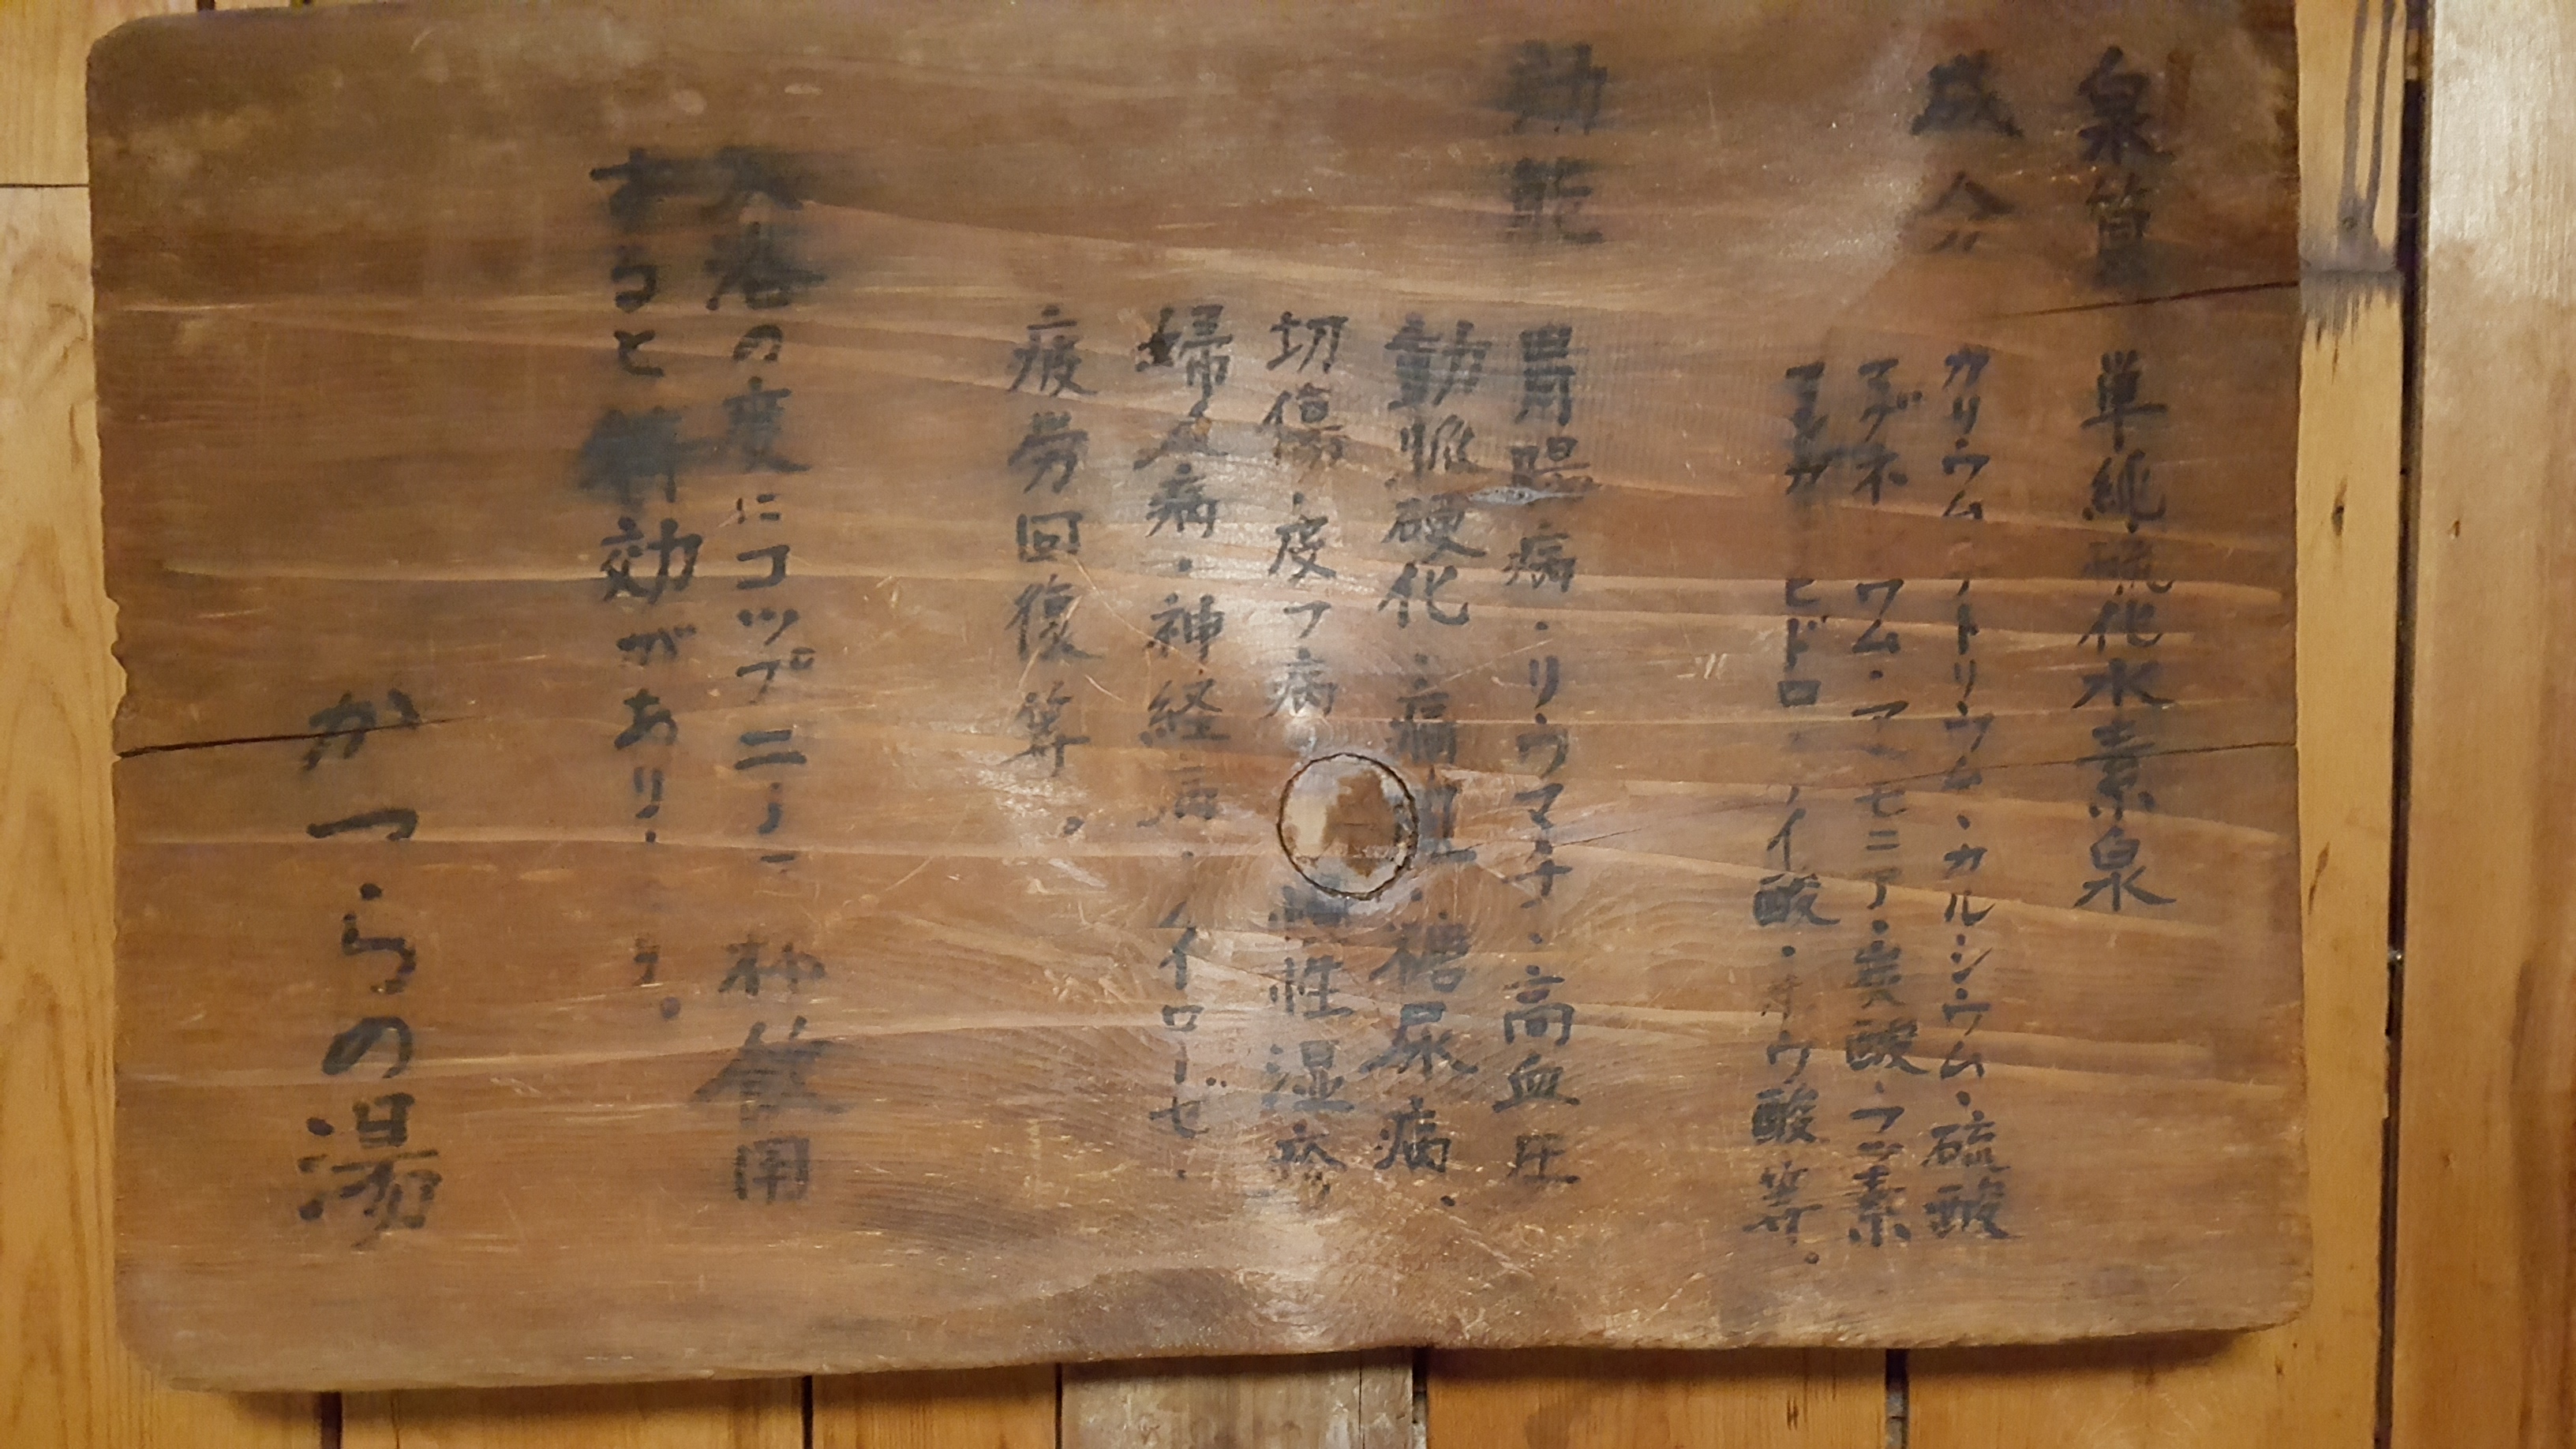 泉質 単純硫化水素泉
成分 カリウム ナトリウム・カルシウム・硫酸
マグネ ウム・アンモニア・炭酸・フッ素
ヒドロ イ酸・ホウ酸等。
効能 胃腸病・リウマチ・高血圧
動脈硬化・ 糖尿病、
切傷・皮フ病 慢性湿疹
婦人病・神経病・ノイローゼ・
疲労回復等。
入浴の度にコップ二 杯飲用
すると特効があり す。
かつらの湯